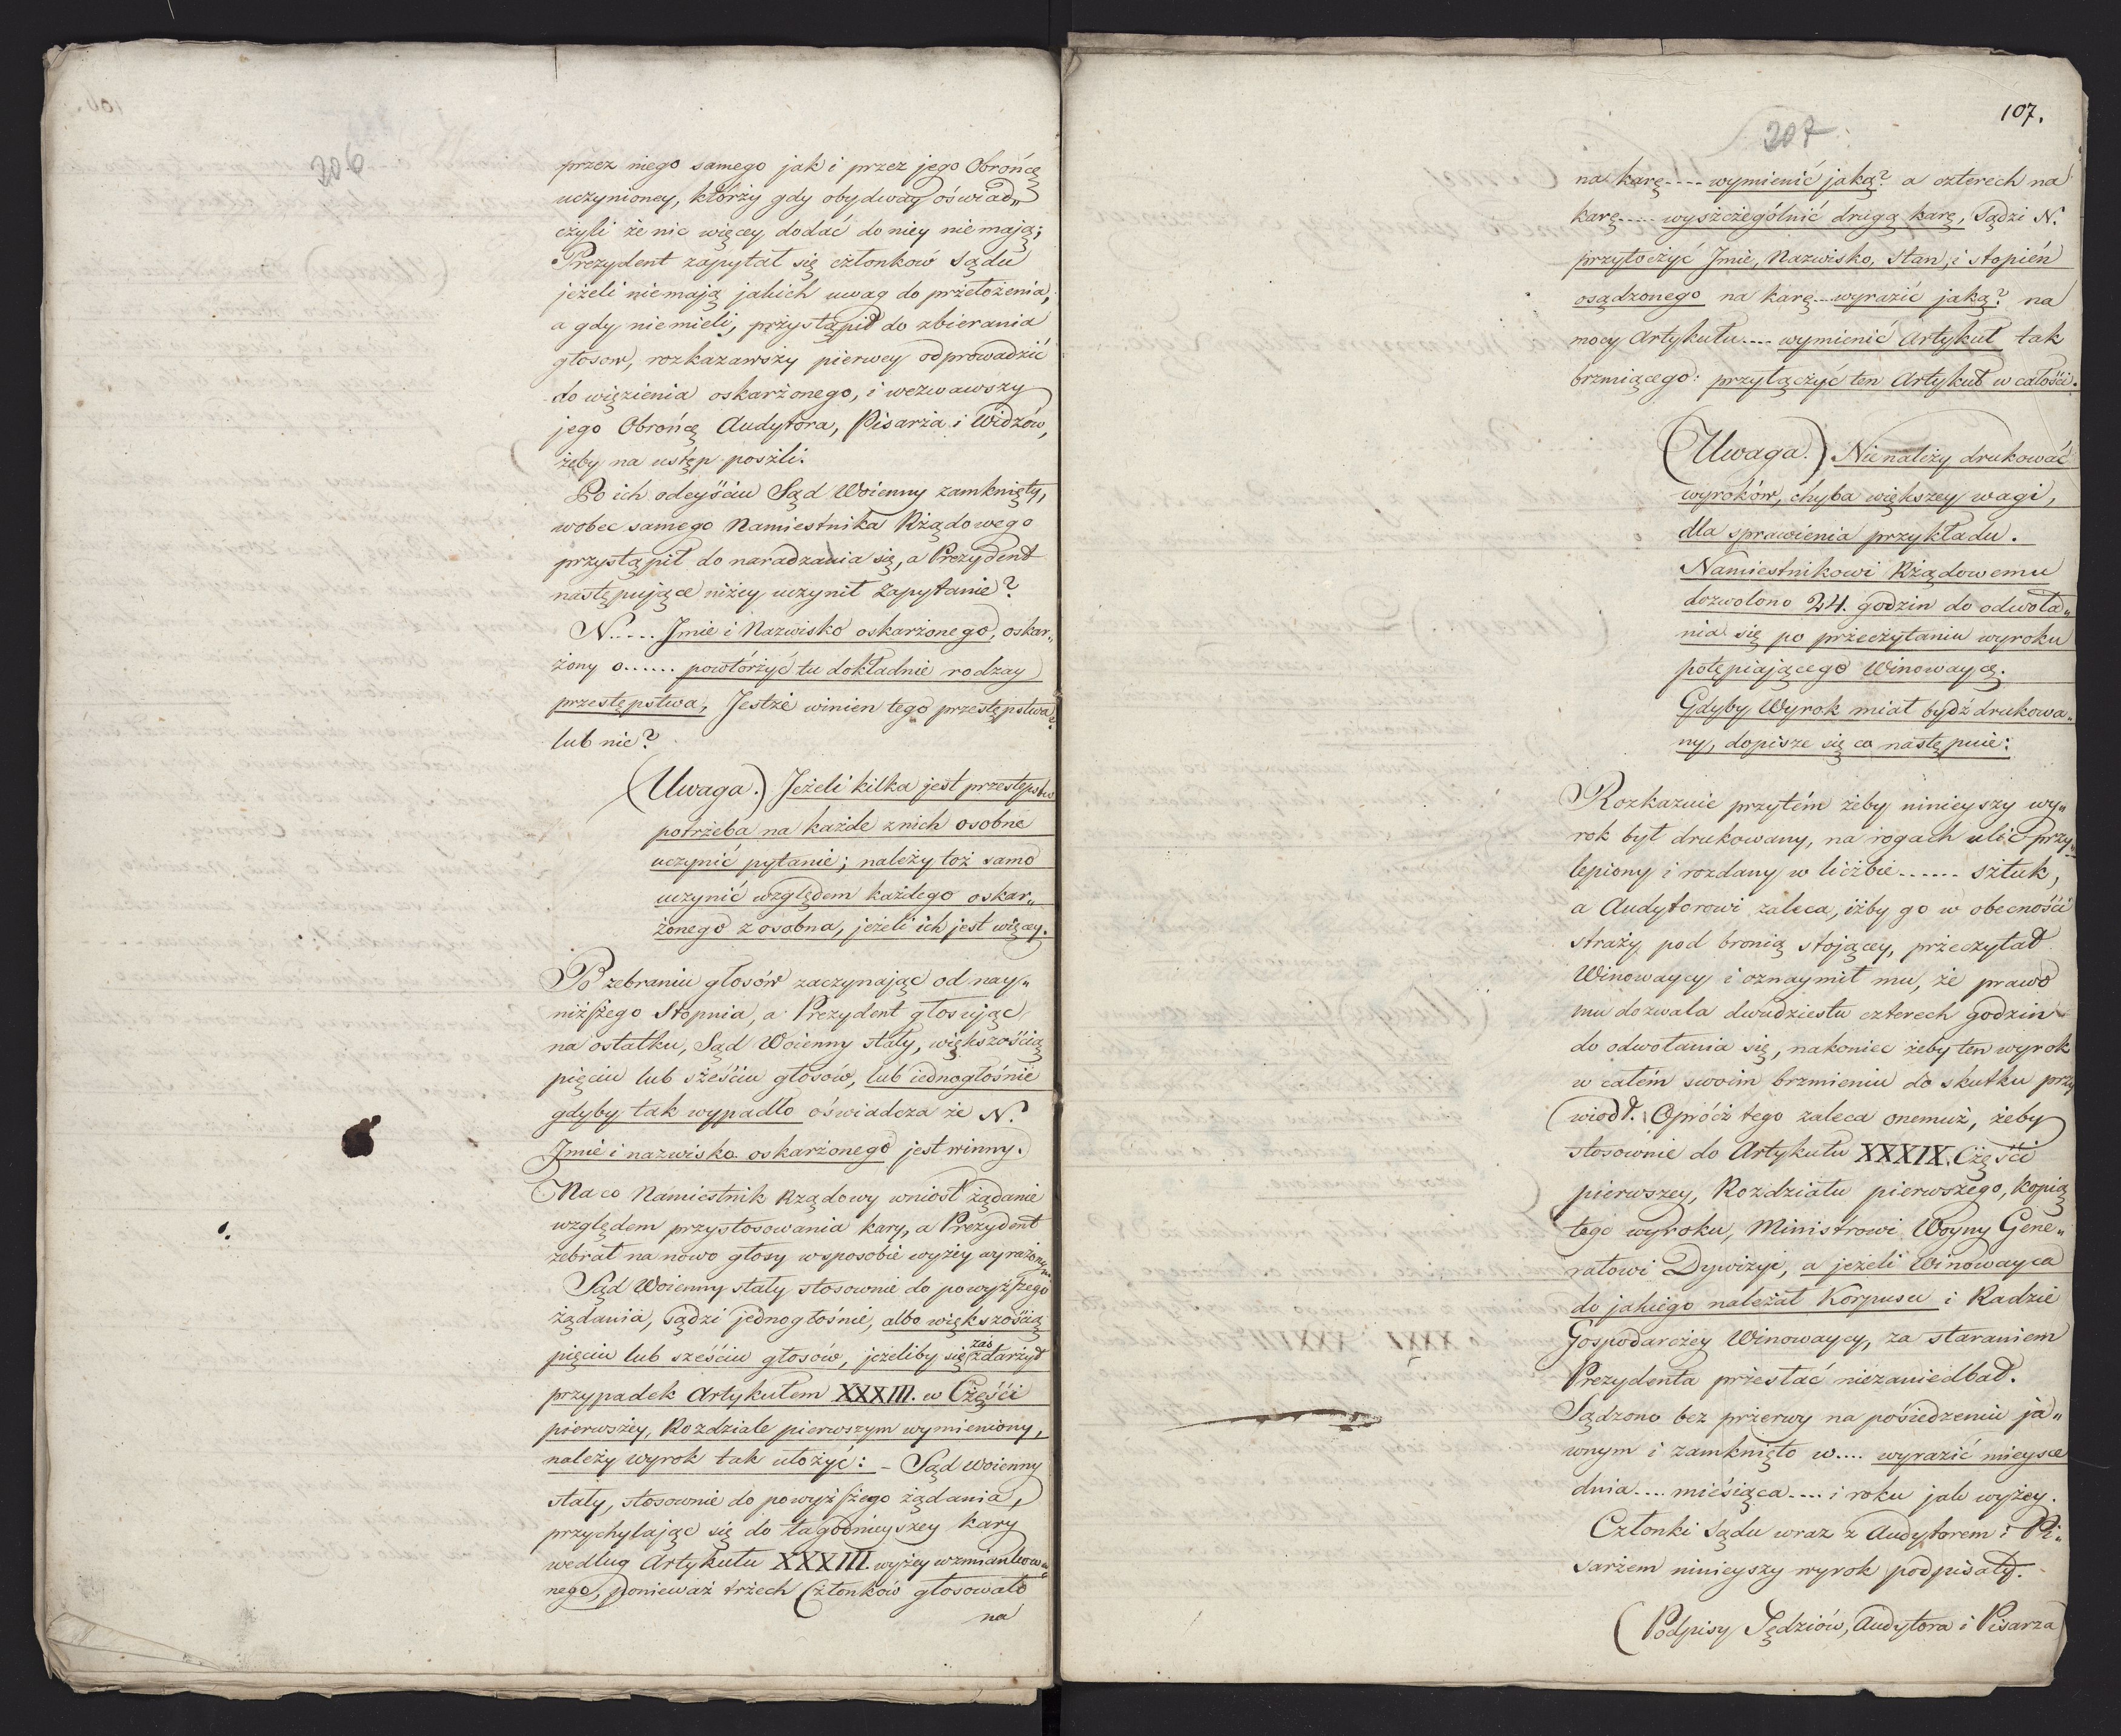 206
przez niego samego jak i przez jego Obrońcę
uczynioney, którzy gdy obydway oświad„
czyli że nic więcey dodać do niey nie mają;
Prezydent zapytał się członków Sądu
jeżeli niemają jakich uwag do przełożenia,
a gdy niemieli, przystąpił do zbierania
głosow, rozkazawszy pierwey odprowadzić
do więzienia oskarżonego, i wezwawszy
jego Obrońcę Audytora, Pisarza i Widzów,
żeby na ustęp poszli.
Po ich odeyściu Sąd Woienny zamknięty,
wobec samego Namiestnika Rządowego
przystąpił do naradzania się, a Prezydent
następujące niżey uczynił Zapytanie?
N..... Jmie i Nazwisko oskarżonego, oskar„
żony o...... powtórzyć tu dokładnie rodzay
przestępstwa, Jestże winien tego przestępstwa?
lub nie?
(Uwaga.) Jeżeli kilka jest przestępstw
potrzeba na każde z nich osobne
uczynić pytanie; należy toż samo
uczynić względem każdego oskar„
żonego z osobna, jeżeli ich jest więcey.
Po zebraniu głosów zaczynając od nay„
niższego Stopnia, a Prezydent głosując
na ostatku, Sąd Woienny stały, większością
pięciu lub sześciu głosów, lub iednogłośnie
gdyby tak wypadło oświadcza że N.
Jmie i nazwisko oskarżonego jest winny.
Na co Namiestnik Rządowy wniosł żądanie
względem przystosowania kary, a Prezydent
zebrał na nowo głosy w sposobie wyżey wyrażonym
Sąd Woienny stały stosownie do powyższego
żądania, sądzi jednogłośnie, albo większością
pięciu lub sześciu głosów, jeżeliby się zaś zdarzył
przypadek Artykułem XXXIII. w Części
pierwszey, Rozdziale pierwszym wymieniony,
należy wyrok tak ułożyć: – Sąd woienny
stały, stosownie do powyższego żądania,
przychylając się do łagodnieyszey kary
według Artykułu XXXIII. wyżey wzmiankowa„
nego, ponieważ trzech Członków głosowało
na
107.
207
na karę.... wymienić jaką? a czterech na
karę..... wyszczególnić drugą karę, Sądzi N.
przyłożyć Jmie, Nazwisko, Stan, i stopień
osądzonego na karę... wyrazić jaką? na
mocy Artykułu.... wymienić Artykuł tak
brzmiącego: przyłączyć ten Artykuł w całości.
(Uwaga.) Nie należy drukować
wyroków, chyba większey wagi,
dla sprawienia przykładu.
Namiestnikowi Rządowemu
dozwolono 24. godzin do odwoła„
nia się po przeczytaniu wyroku
potępiającego Winowaycę.
Gdyby Wyrok miał bydź drukowa„
ny, dopisze się co następuie:
Rozkazuie przytém żeby ninieyszy wy„
rok był drukowany, na rogach ulic przy„
lepiony i rozdany w liczbie....... sztuk,
a Audytorowi zaleca, iżby go w obecności
straży pod bronią stojącey, przeczytał
Winowaycy i oznaymił mu, że prawo
mu dozwala dwudziestu czterech godzin
do odwołania się, nakoniec żeby ten wyrok
w całém swoim brzmieniu do skutku przy
wiodł. Oprócz tego zaleca onemuż, żeby
stosownie do Artykułu XXXIX. Części
pierwszey, Rozdziału pierwszego, kopią
tego wyroku, Ministrowi Woyny Gene„
rałowi Dywizyi, a jeżeli Winowayca
do jakiego należał Korpusu i Radzie
Gospodarczey Winowaycy, za staraniem
Prezydenta przesłać niezaniedbał.
Sądzono bez przerwy na posiedzeniu ja„
wnym i zamknięto w.... wyrazić mieysce
dnia.... miesiąca.... i roku jak wyżey.
Członki Sądu wraz z Audytorem i Pi„
sarzem ninieyszy wyrok podpisały.
(Podpisy Sędziów, Audytora i Pisarza